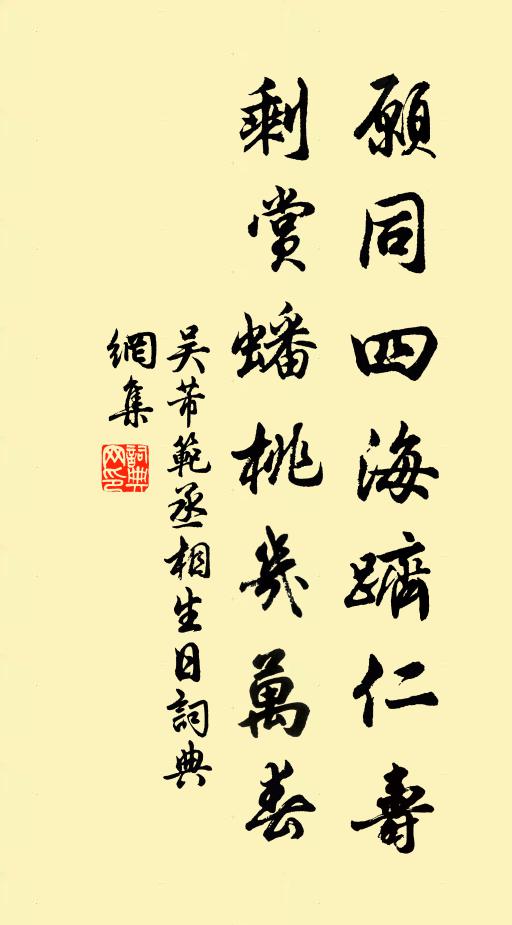 願同四海躋仁壽
剩賞蟠桃幾萬春
吳芾範丞相生日詞典
網集
詞典網印